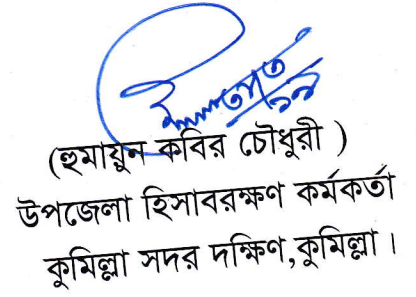 (হুমায়ুন কবির চৌধুরী )
উপজেলা হিসাবরক্ষণ কর্মকর্তা
কুমিল্লা সদর দক্ষিণ,কুমিল্লা।